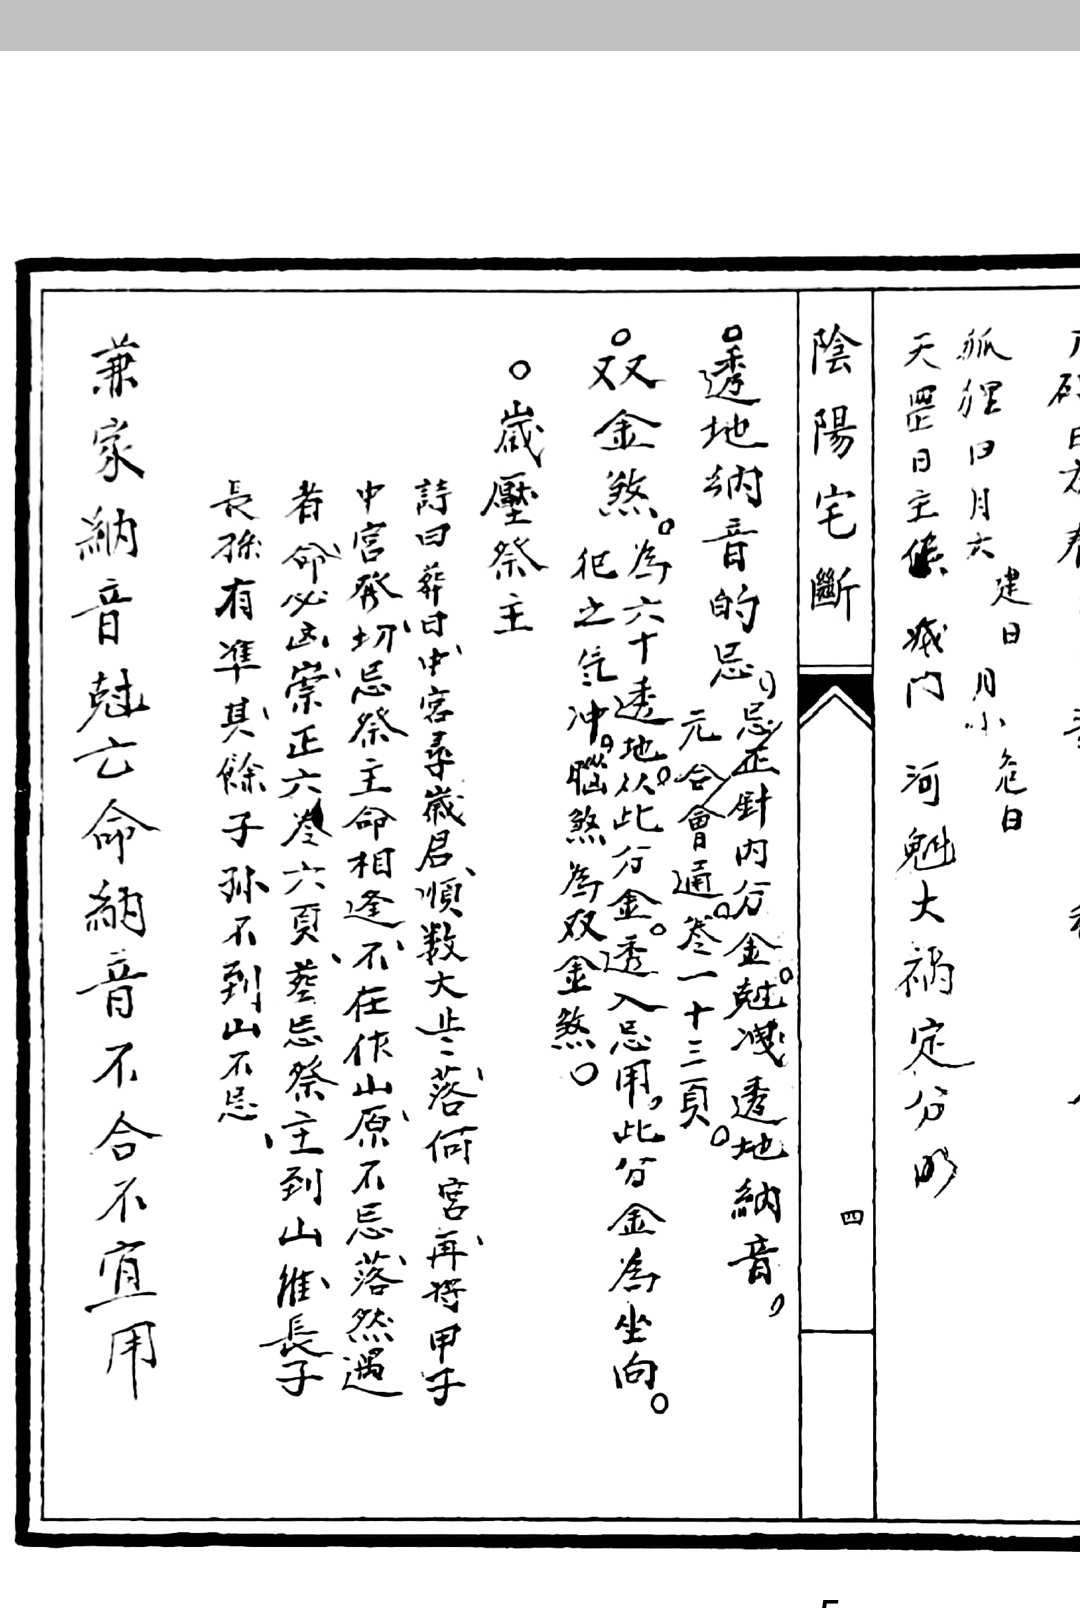 狐狸日月大 建日 月小 危日
天罡日主 滅門 河魁大禍定分明
陰陽宅斷
四
透地納音的忌
忌正針內分金尅洩透地納音
元合會通卷一十三頁
双金煞
為六十透地从此分金透入忌用此分金為坐向
犯之气冲腦煞為双金煞
歲壓祭主
詩曰葬日中宮尋歲君順数大歲落何宮再將甲子
中宮發切忌祭主命相逢不在作山原不忌落然遇
者命必凶崇正六卷六頁葬忌祭主到山維長子
長孫有準其餘子孙不到山不忌
兼家納音尅亡命納音不合不宜用
5